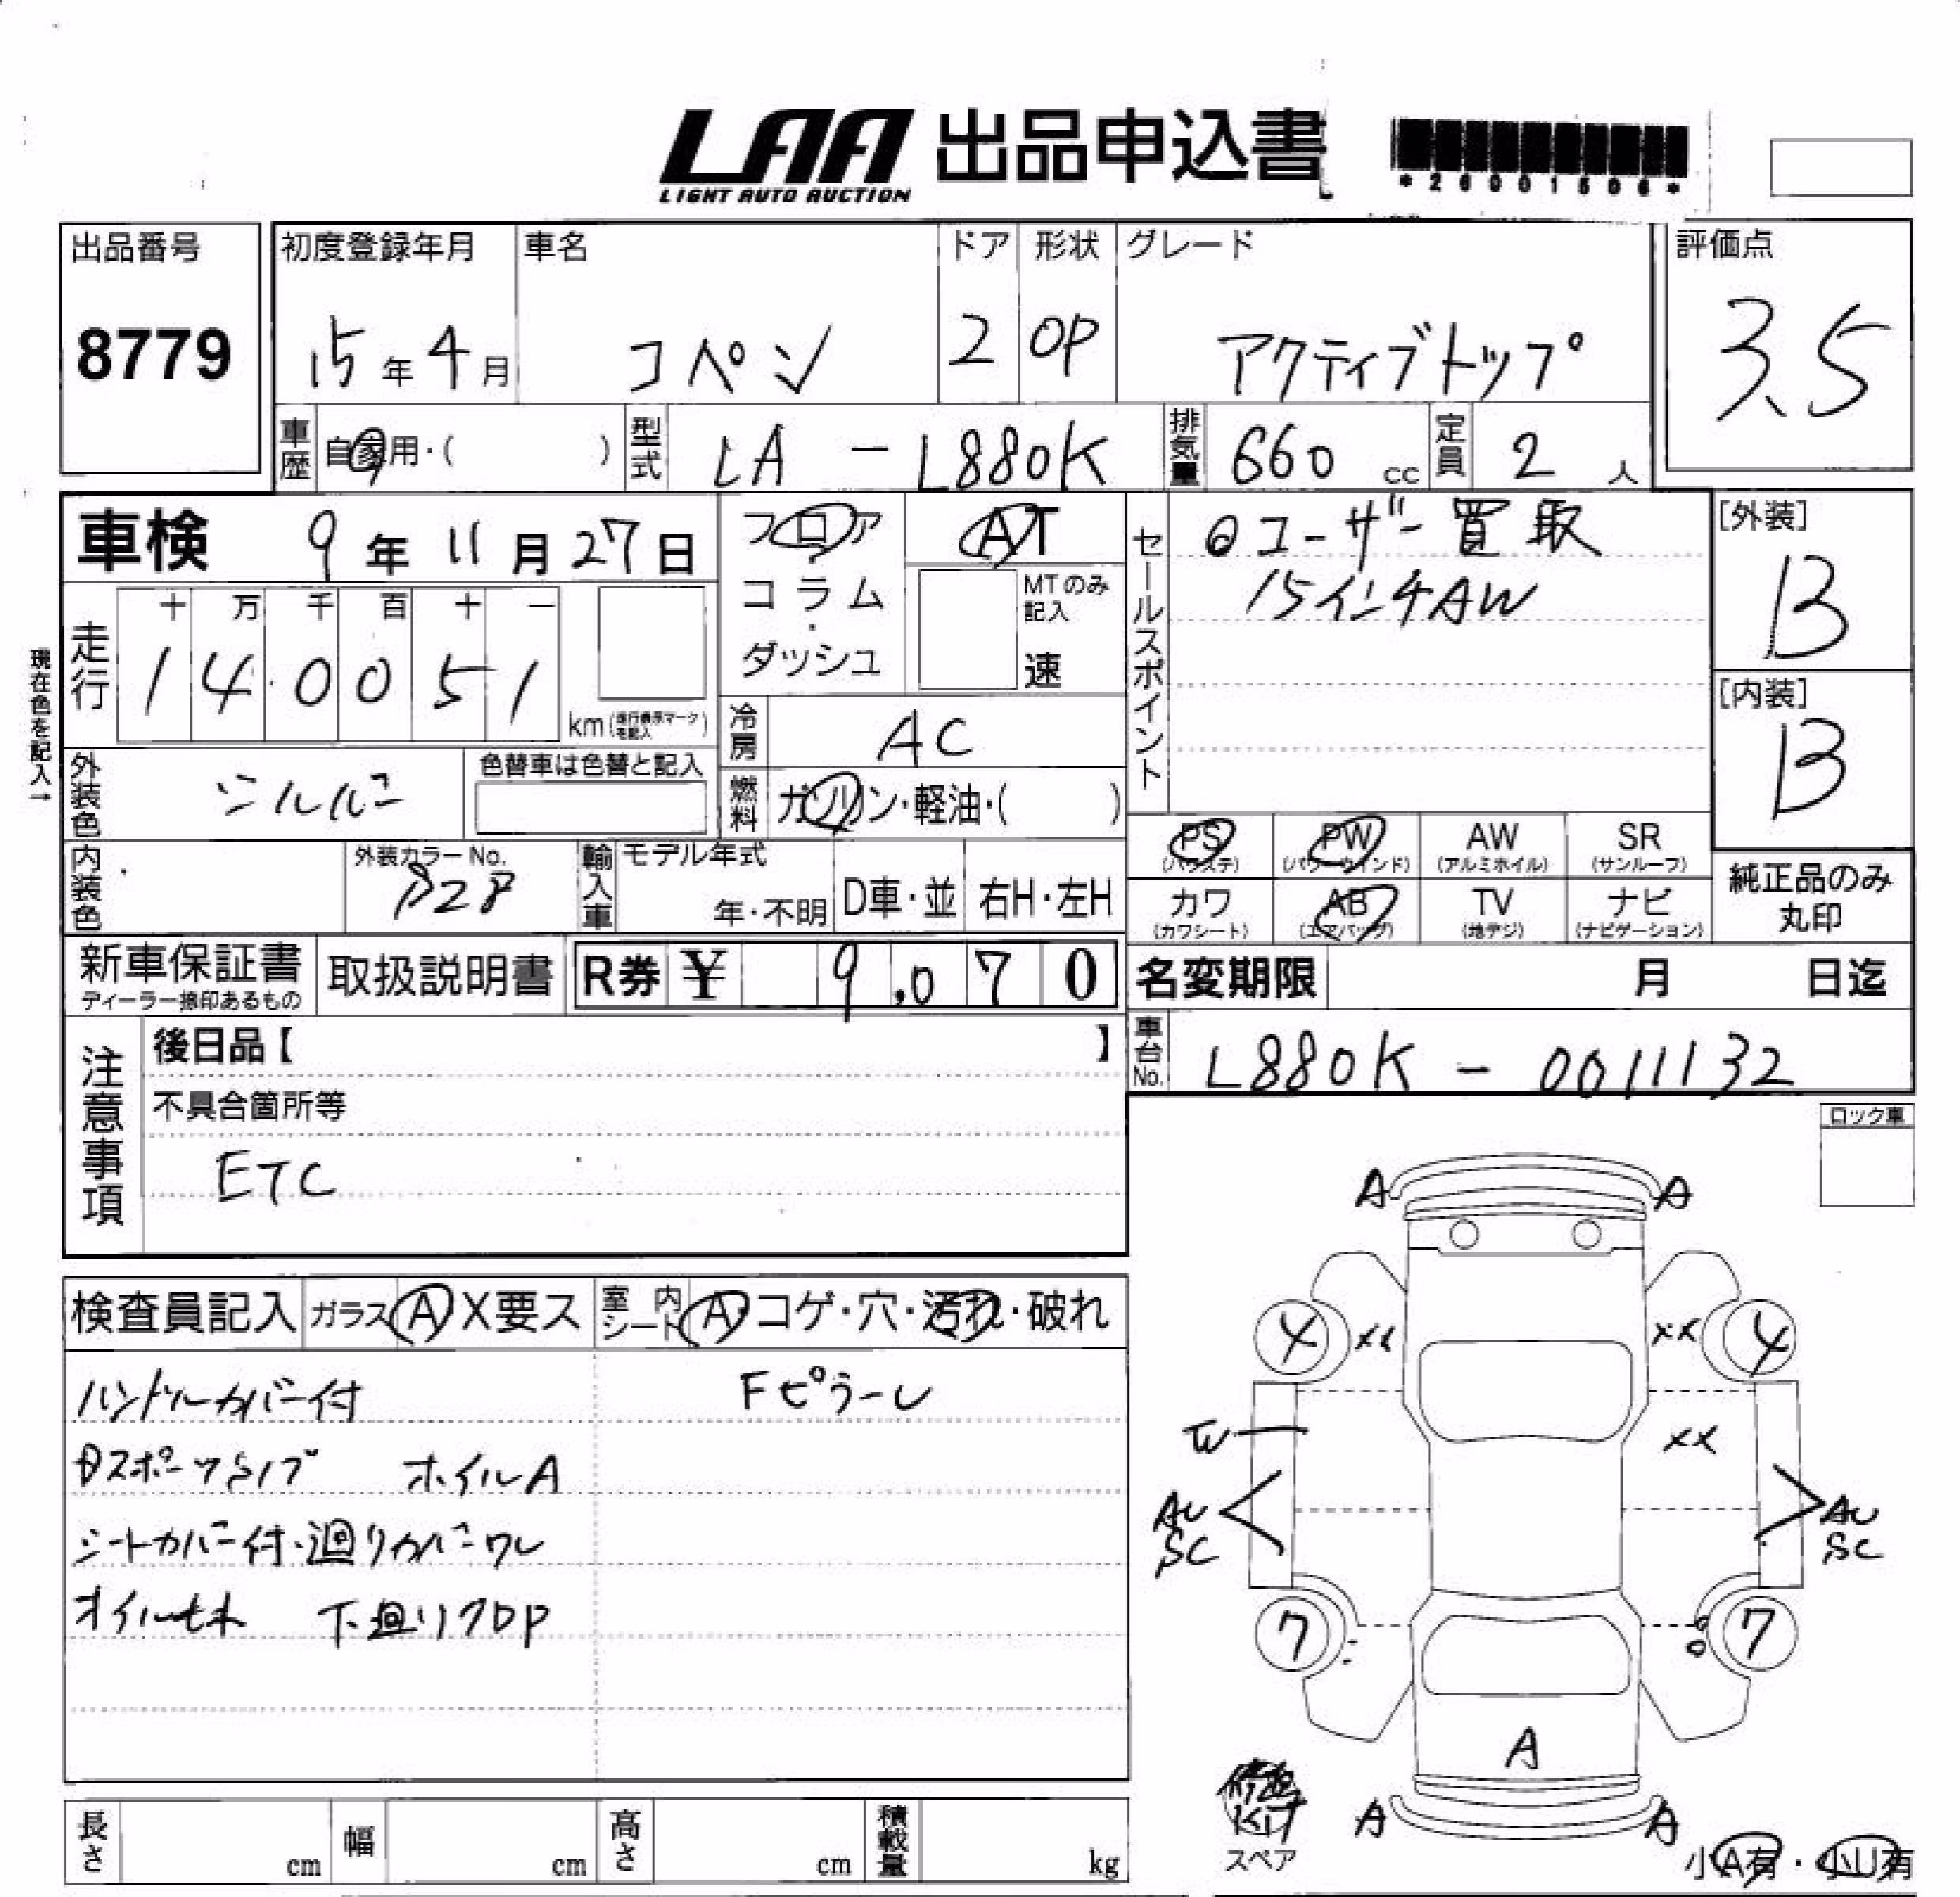 LAA 出品申込書
LIGHT AUTO AUCTION
*26001506*
出品番号 初度登録年月 車名 ドア 形状 グレード 評価点
8779 15年4月 コペン 2 OP アクティブトップ 3.5
車歴 自家用・( ) 型式 LA - L880K 排気量 660 cc 定員 2 人
車検 9年11月27日
フロア・コラム・ダッシュ
AT
MTのみ記入
速
セールスポイント
◎ユーザー買取
15インチAW
[外装]
B
[内装]
B
現在色を記入→
走行 十 万 千 百 十 一
140051
km(走行表示マークを記入)
冷房 AC
外装色 シルバー 色替車は色替と記入
燃料 ガソリン・軽油・( )
内装色 外装カラーNo. 輸入車 モデル年式
年・不明 D車・並 右H・左H
PS (パワステ) PW (パワーウインド) AW (アルミホイル) SR (サンルーフ)
カワ (カワシート) AB (エアバッグ) TV (地デジ) ナビ (ナビゲーション)
純正品のみ丸印
新車保証書 ディーラー捺印あるもの 取扱説明書 R券 ¥ 9,070
名変期限 月 日迄
車台No. L880K - 0011132
注意事項
後日品【 】
不具合箇所等
ETC
ロック車
検査員記入 ガラス A X要ス 室内シート A・コゲ・穴・汚れ・破れ
ハンドルカバー付 Fピラーレ
ホイルA
シートカバー付・廻りカバーワレ
オイルモレ 下廻りクロP
A A
4 XX XX 4
W XX
AU SC AU SC
7 7
A
A A
修理KIT
スペア
小A有・小U有
長さ cm 幅 cm 高さ cm 積載量 kg